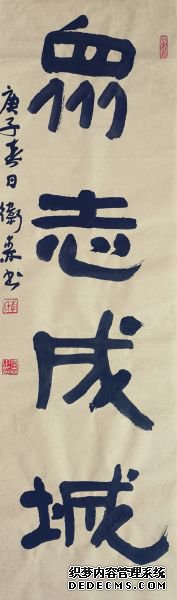 眾志成城
庚子春日衛森书
织梦内容管理系统
DEDECMS.COM